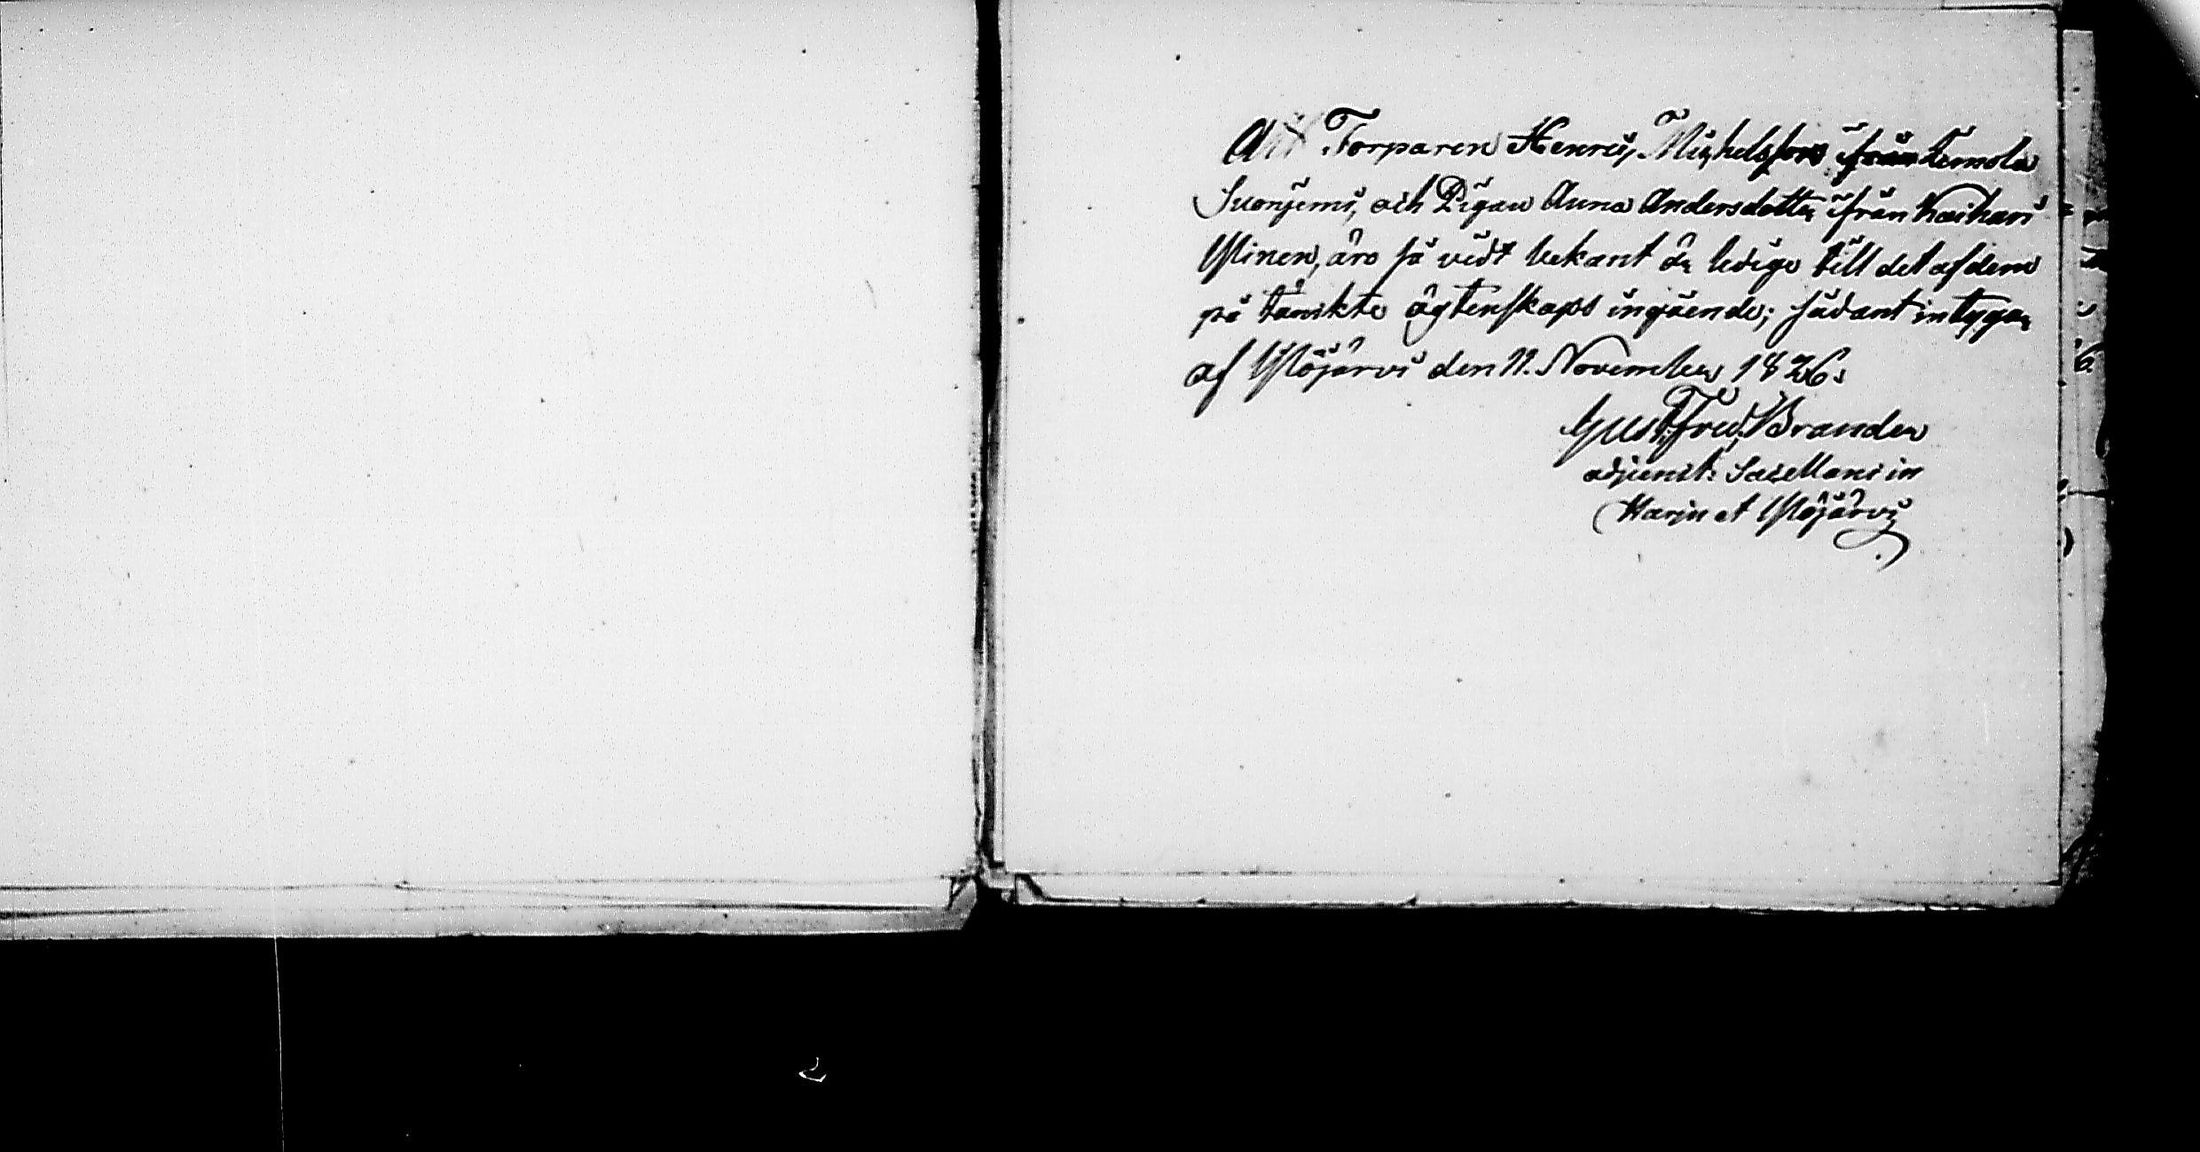 Att Torparen Henric Michelsson ifrån Lemola
Suonjemi, och Pigan Anna Andersdotter ifrån Kaihari
Ylinen, äro så vidt bekant är ledige till det af dem
på tänckte ägtenskaps ingående; sådant intygar
af Ylöjärvi den 11. November 1826.
Gust. Fred. Brander
adjunct. Sacellani in
Harju et Ylöjärvi